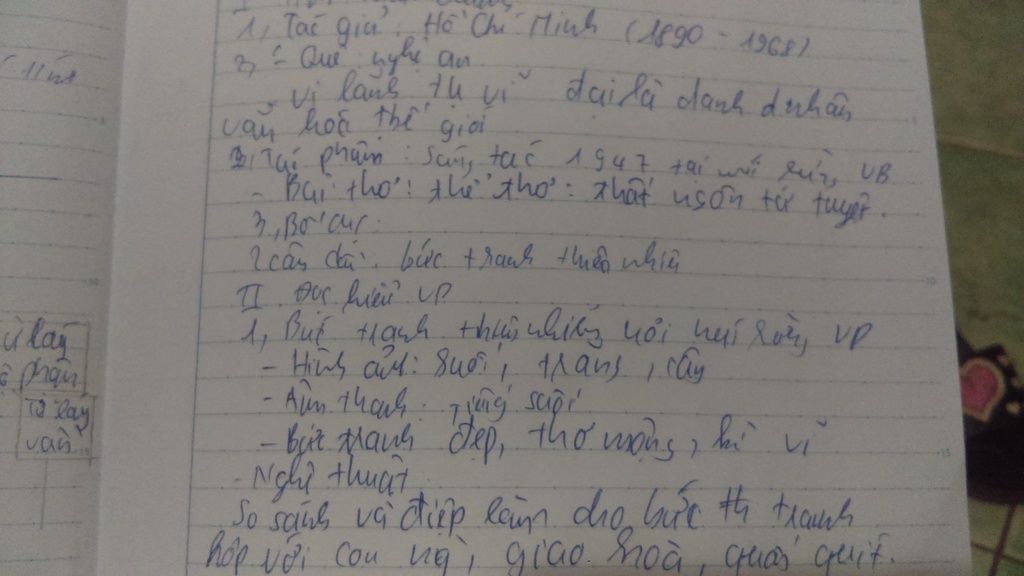 1, Tác giả. Hồ Chí Minh (1890 - 1968)
2, - Quê nghệ an
vị lãnh tụ vĩ đại là danh nhân
văn hoá thế giới
Tác phẩm: sáng tác 1947 tại núi rừng VB
- Bài thơ: thể thơ: thất ngôn tứ tuyệt.
3, Bố cục:
2 câu đầu. bức tranh thiên nhiên
II Đọc hiểu VB
1, Bức tranh thiên nhiên nơi núi rừng VB
- Hình ảnh: suối, trang, cây
- Âm thanh. Tiếng suối
- Bức tranh đẹp, thơ mộng, kì vĩ
- Nghệ thuật
So sánh và điệp làm cho bức th tranh
hợp với con ng, giao hoà, quấn quít.
phận
từ láy
vần